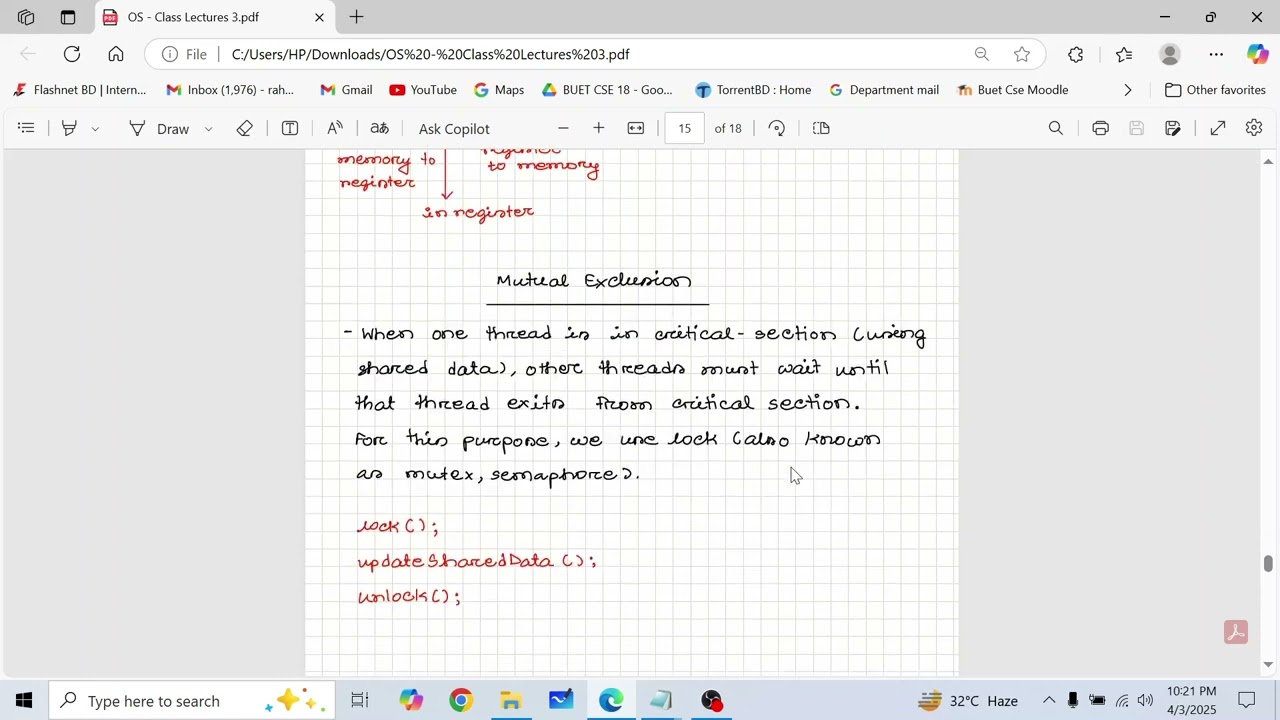 OS - Class Lectures 3.pdf
File
C:/Users/HP/Downloads/OS%20-%20Class%20Lectures%203.pdf
Flashnet BD | Intern...
Inbox (1,976) - rah...
Gmail
YouTube
Maps
BUET CSE 18 - Goo...
TorrentBD : Home
Department mail
Buet Cse Moodle
Other favorites
Draw
Ask Copilot
15
of 18
memory to
register
register
to memory
in register
Mutual Exclusion
- When one thread is in critical-section (using
shared data), other threads must wait until
that thread exits from critical section.
For this purpose, we use lock (also known
as mutex, semaphore).
lock();
updateSharedData();
unlock();
Type here to search
32°C Haze
10:21 PM
4/3/2025